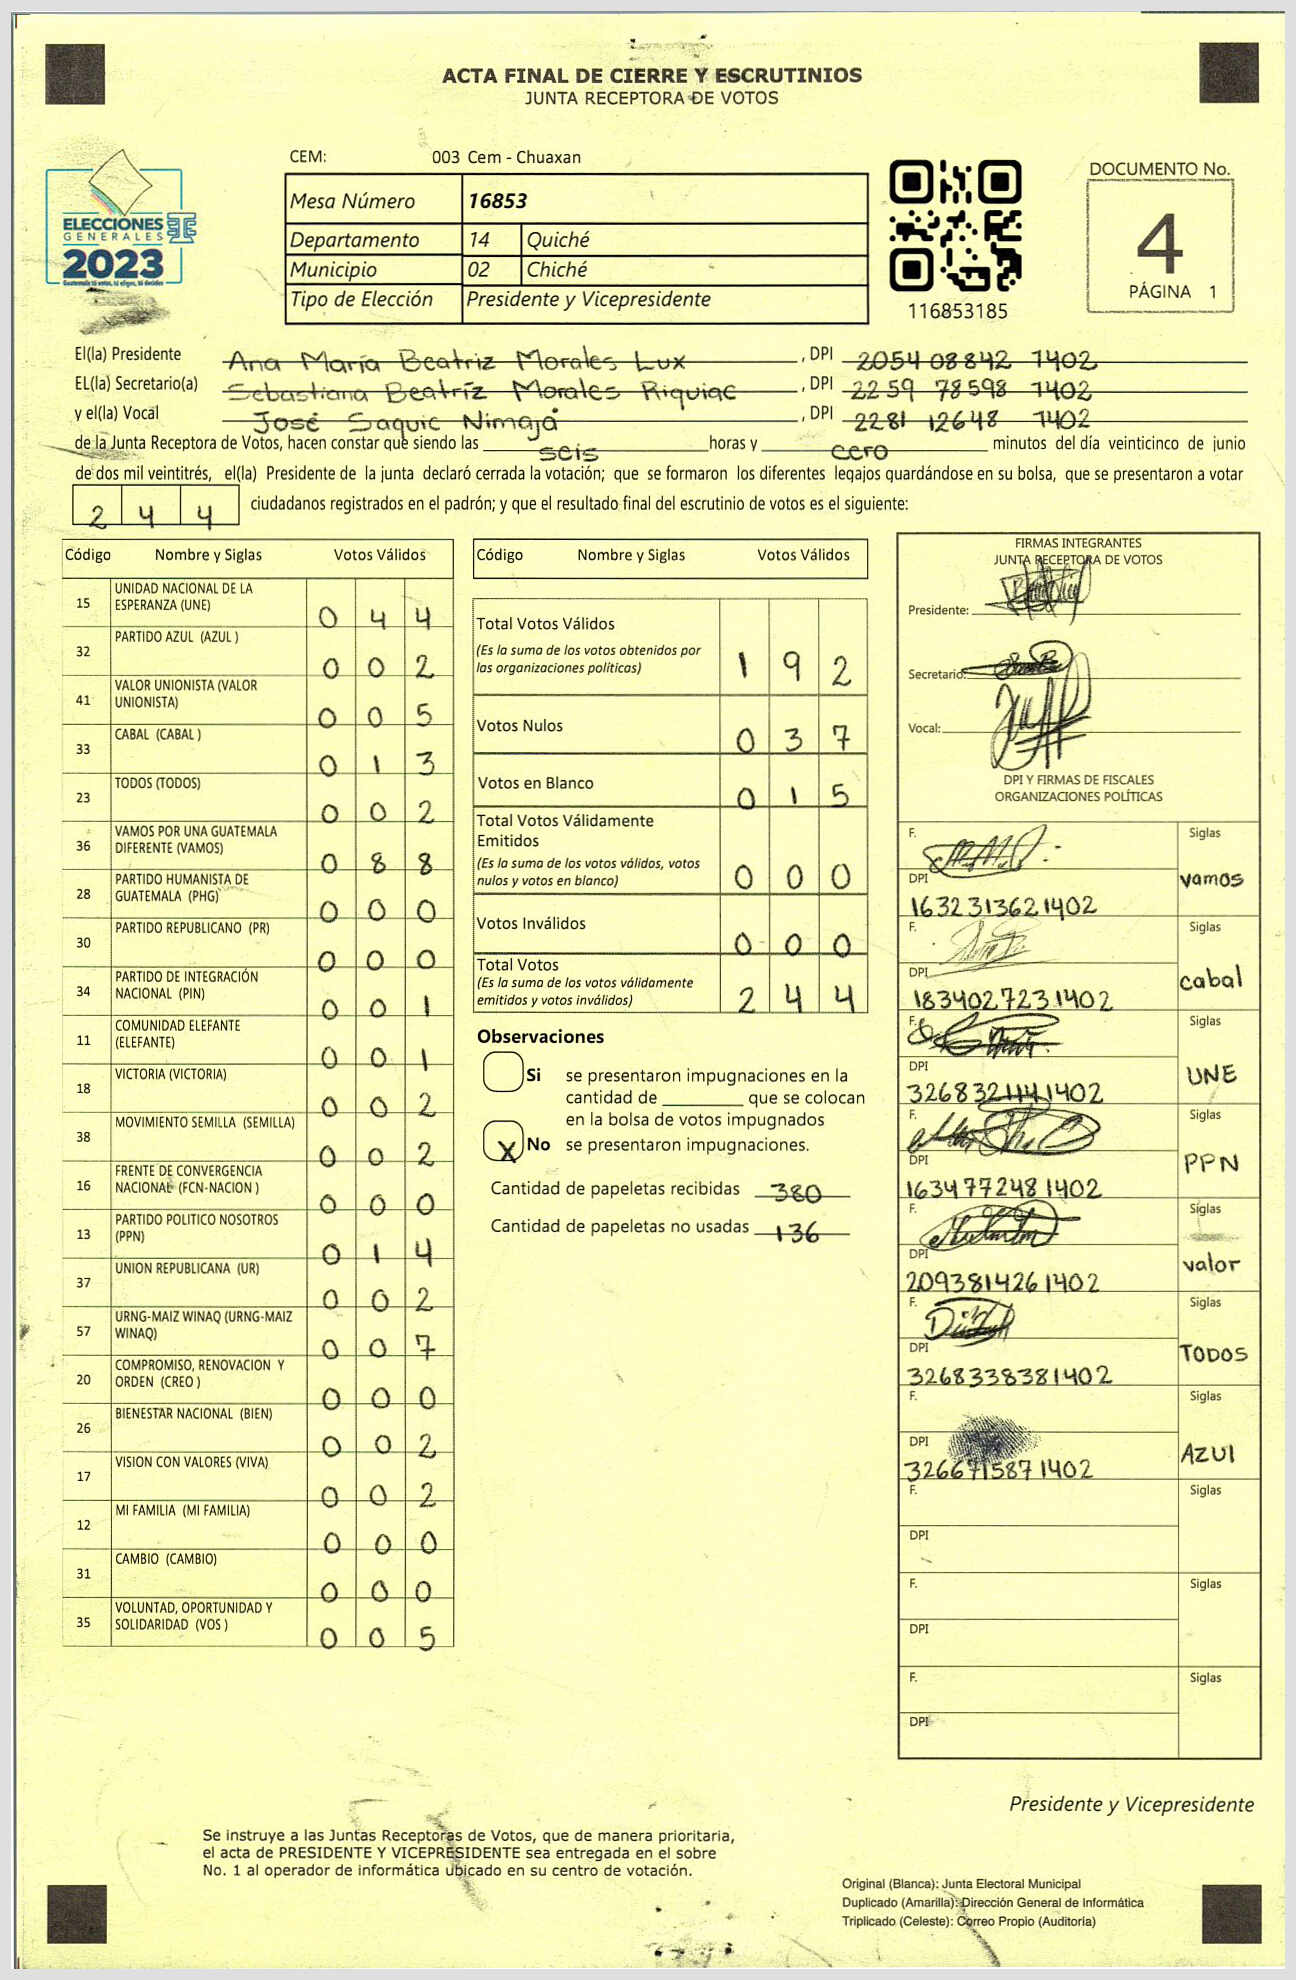 ACTA FINAL DE CIERRE Y ESCRUTINIOS
JUNTA RECEPTORA DE VOTOS
ELECCIONES
GENERALES
2023
Guatemala tú votas, tú eliges, tú decides
CEM: 003 Cem - Chuaxan
Mesa Número 16853
Departamento 14 Quiché
Municipio 02 Chiché
Tipo de Elección Presidente y Vicepresidente
116853185
DOCUMENTO No.
4
PÁGINA 1
El(la) Presidente Ana María Beatriz Morales Lux , DPI 2054 08842 1402
EL(la) Secretario(a) Sebastiana Beatríz Morales Riquiac , DPI 2259 78598 1402
y el(la) Vocal José Saquic Nimajá , DPI 2281 12648 1402
de la Junta Receptora de Votos, hacen constar que siendo las seis horas y cero minutos del día veinticinco de junio
de dos mil veintitrés, el(la) Presidente de la junta declaró cerrada la votación; que se formaron los diferentes legajos guardándose en su bolsa, que se presentaron a votar
2 4 4 ciudadanos registrados en el padrón; y que el resultado final del escrutinio de votos es el siguiente:
Código Nombre y Siglas Votos Válidos
15 UNIDAD NACIONAL DE LA ESPERANZA (UNE) 0 4 4
32 PARTIDO AZUL (AZUL ) 0 0 2
41 VALOR UNIONISTA (VALOR UNIONISTA) 0 0 5
33 CABAL (CABAL ) 0 1 3
23 TODOS (TODOS) 0 0 2
36 VAMOS POR UNA GUATEMALA DIFERENTE (VAMOS) 0 8 8
28 PARTIDO HUMANISTA DE GUATEMALA (PHG) 0 0 0
30 PARTIDO REPUBLICANO (PR) 0 0 0
34 PARTIDO DE INTEGRACIÓN NACIONAL (PIN) 0 0 1
11 COMUNIDAD ELEFANTE (ELEFANTE) 0 0 1
18 VICTORIA (VICTORIA) 0 0 2
38 MOVIMIENTO SEMILLA (SEMILLA) 0 0 2
16 FRENTE DE CONVERGENCIA NACIONAL (FCN-NACION ) 0 0 0
13 PARTIDO POLITICO NOSOTROS (PPN) 0 1 4
37 UNION REPUBLICANA (UR) 0 0 2
57 URNG-MAIZ WINAQ (URNG-MAIZ WINAQ) 0 0 7
20 COMPROMISO, RENOVACION Y ORDEN (CREO ) 0 0 0
26 BIENESTAR NACIONAL (BIEN) 0 0 2
17 VISION CON VALORES (VIVA) 0 0 2
12 MI FAMILIA (MI FAMILIA) 0 0 0
31 CAMBIO (CAMBIO) 0 0 0
35 VOLUNTAD, OPORTUNIDAD Y SOLIDARIDAD (VOS ) 0 0 5
Código Nombre y Siglas Votos Válidos
Total Votos Válidos
(Es la suma de los votos obtenidos por
las organizaciones políticas) 1 9 2
Votos Nulos 0 3 7
Votos en Blanco 0 1 5
Total Votos Válidamente
Emitidos
(Es la suma de los votos válidos, votos
nulos y votos en blanco) 0 0 0
Votos Inválidos 0 0 0
Total Votos
(Es la suma de los votos válidamente
emitidos y votos inválidos) 2 4 4
Observaciones
Si se presentaron impugnaciones en la
cantidad de ________ que se colocan
en la bolsa de votos impugnados
X No se presentaron impugnaciones.
Cantidad de papeletas recibidas 380
Cantidad de papeletas no usadas 136
FIRMAS INTEGRANTES
JUNTA RECEPTORA DE VOTOS
Presidente:
Secretario:
Vocal:
DPI Y FIRMAS DE FISCALES
ORGANIZACIONES POLÍTICAS
F. Siglas
DPI vamos
1632313621402
F. Siglas
DPI cabal
1834027231402
F. Siglas
DPI UNE
3268321141402
F. Siglas
DPI PPN
1634772481402
F. Siglas
DPI valor
2093814261402
F. Siglas
DPI TODOS
3268338381402
F. Siglas
DPI AZUl
3266715871402
F. Siglas
DPI
F. Siglas
DPI
F. Siglas
DPI
Presidente y Vicepresidente
Se instruye a las Juntas Receptoras de Votos, que de manera prioritaria,
el acta de PRESIDENTE Y VICEPRESIDENTE sea entregada en el sobre
No. 1 al operador de informática ubicado en su centro de votación.
Original (Blanca): Junta Electoral Municipal
Duplicado (Amarilla): Dirección General de Informática
Triplicado (Celeste): Correo Propio (Auditoría)